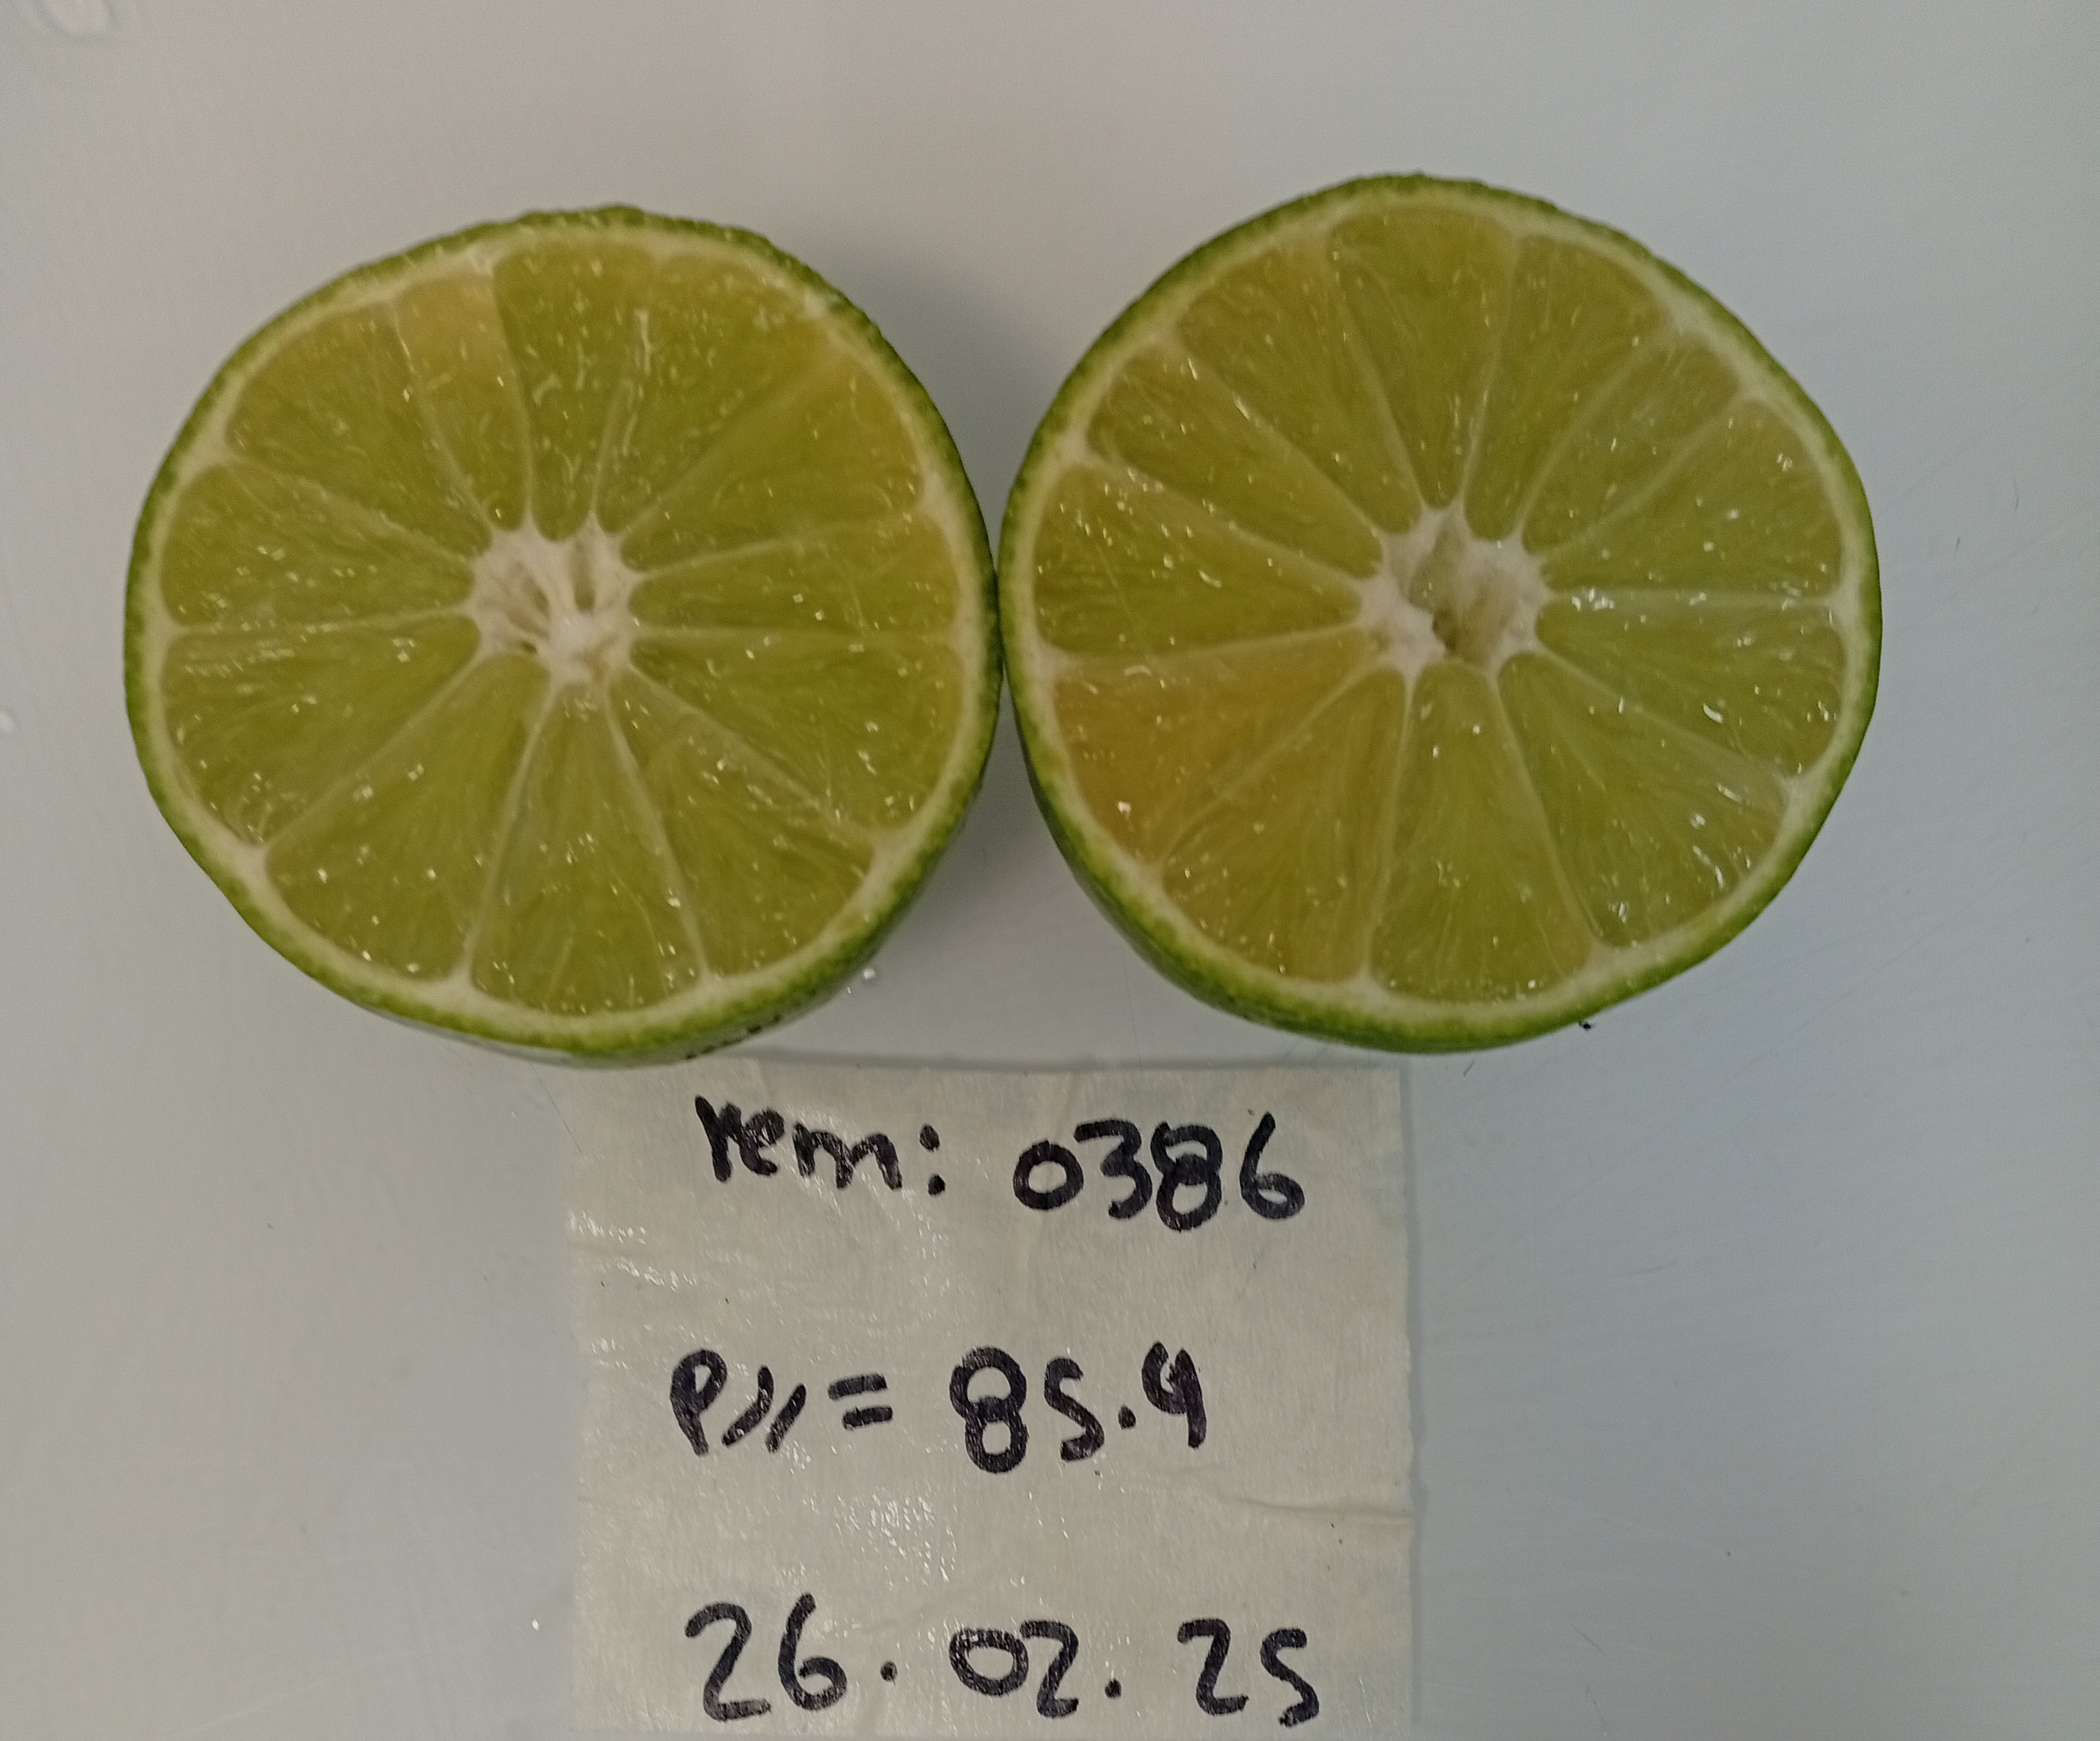 rem: 0386
P// = 85.4
26.02.25